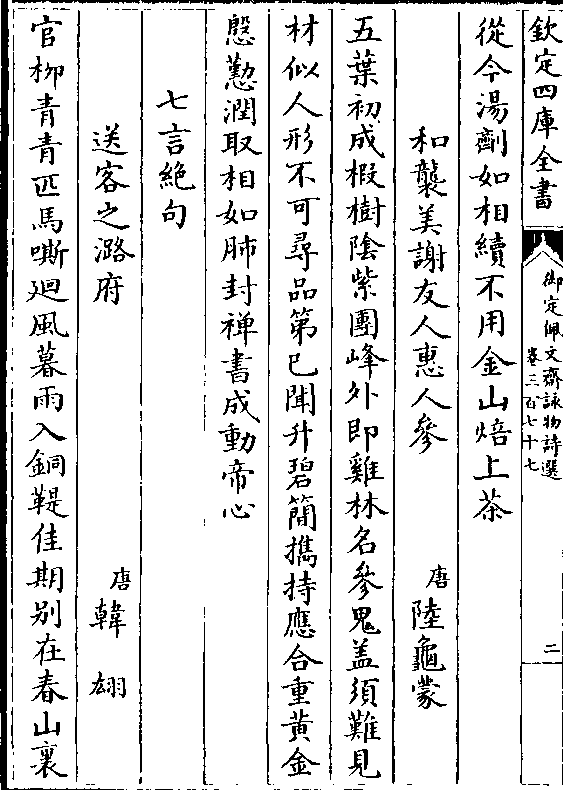 欽定四庫全書
御定佩文齋詠物詩選
卷三百七十七
二
從今湯劑如相續不用金山焙上茶
和襲美謝友人惠人參
唐陸龜蒙
五葉初成椵樹陰紫團峰外即雞林名參鬼盖須難見
材似人形不可尋品第已聞升碧簡擕持應合重黃金
慇懃潤取相如肺封禪書成動帝心
七言絶句
送客之潞府
唐韓翃
官柳青青匹馬嘶廻風暮雨入銅鞮佳期别在春山裏